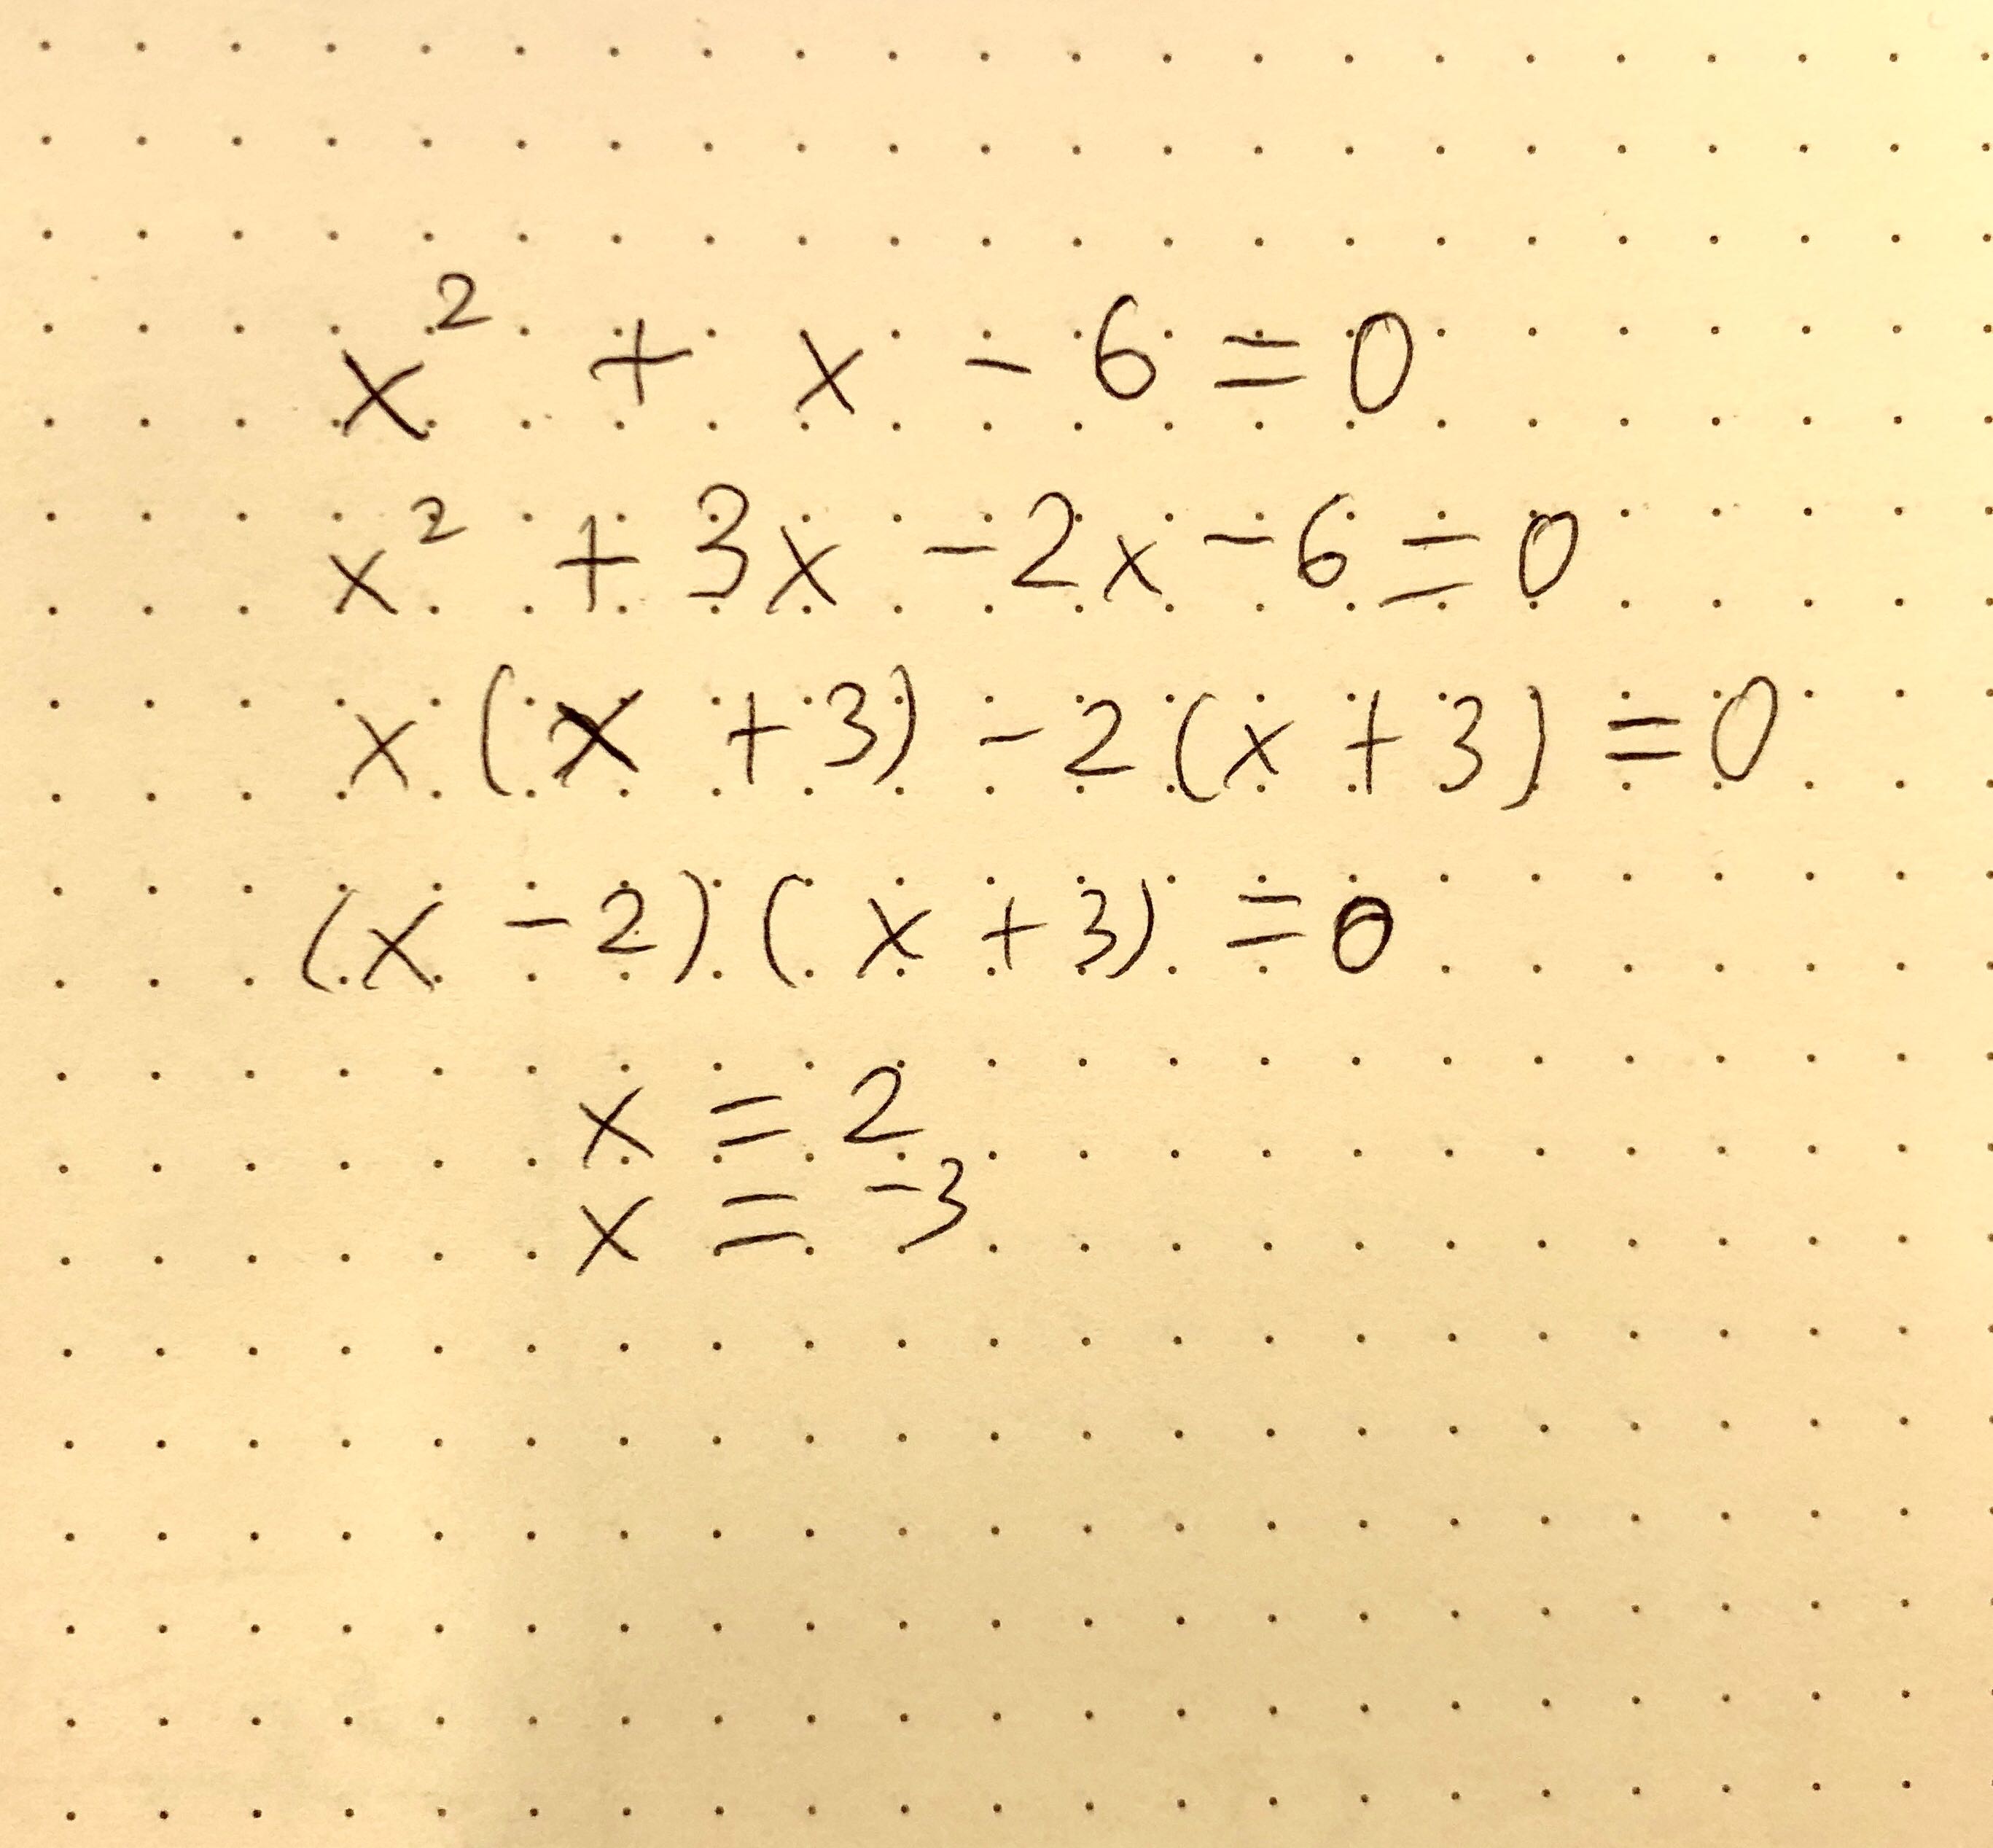 x² + x - 6 = 0
x² + 3x - 2x - 6 = 0
x (x + 3) - 2 (x + 3) = 0
(x - 2) (x + 3) = 0
x = 2
x = -3